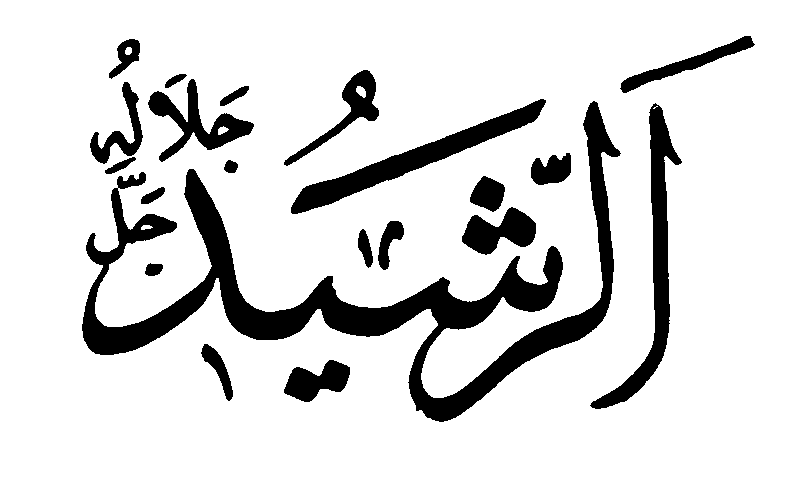 اَلرَّشِيدُ
جَلَّ جَلَالُهُ